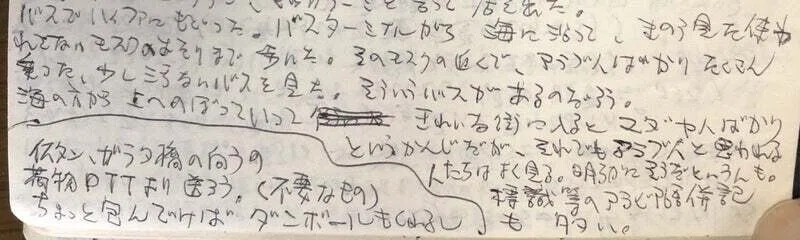 と言って店を出た。
バスでハイファにもどった。バスターミナルから海に沿って、きのう見た使わ
れてないモスクのあたりまで歩いた。そのモスクの近くで、アラブ人ばかりたくさん
乗った、少し汚ないバスを見た。そういうバスがあるのだろう。
海の方から上へのぼっていって きれいな街に入るとユダヤ人ばかり
というかんじだが、それでもアラブ人と思われる
人たちはよく見る。明らかにそうだという人も。
標識等のアラビア語併記
も多い。
イスタン、ガラタ橋の向うの
荷物PTTより送ろう。(不要なもの)
ちょっと包んでけばダンボールもくれるし